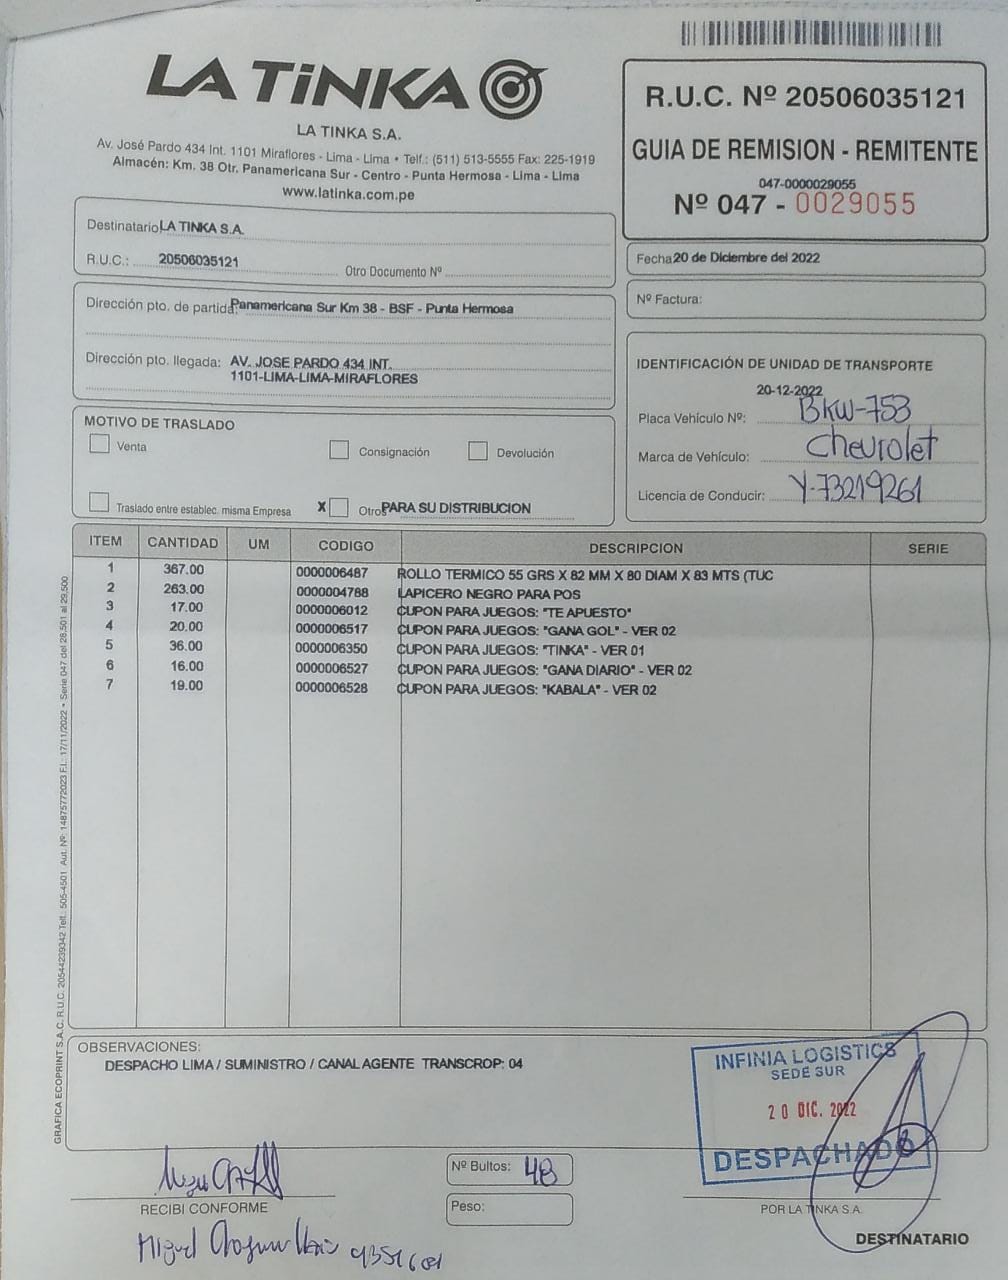 LA TiNKA
LA TINKA S.A.
Av. José Pardo 434 Int. 1101 Miraflores - Lima - Lima • Telf.: (511) 513-5555 Fax: 225-1919
Almacén: Km. 38 Otr. Panamericana Sur - Centro - Punta Hermosa - Lima - Lima
www.latinka.com.pe
R.U.C. Nº 20506035121
GUIA DE REMISION - REMITENTE
047-0000029055
Nº 047 - 0029055
Destinatario LA TINKA S.A.
R.U.C.: 20506035121 Otro Documento Nº
Fecha 20 de Diciembre del 2022
Nº Factura:
Dirección pto. de partida: Panamericana Sur Km 38 - BSF - Punta Hermosa
Dirección pto. llegada: AV. JOSE PARDO 434 INT.
1101-LIMA-LIMA-MIRAFLORES
IDENTIFICACIÓN DE UNIDAD DE TRANSPORTE
20-12-2022
Placa Vehículo Nº: BKW-753
Marca de Vehículo: Chevrolet
Licencia de Conducir: Y-73219261
MOTIVO DE TRASLADO
Venta Consignación Devolución
Traslado entre establec. misma Empresa X Otros PARA SU DISTRIBUCION
ITEM CANTIDAD UM CODIGO DESCRIPCION SERIE
1 367.00 0000006487 ROLLO TERMICO 55 GRS X 82 MM X 80 DIAM X 83 MTS (TUC
2 263.00 0000004788 LAPICERO NEGRO PARA POS
3 17.00 0000006012 CUPON PARA JUEGOS: "TE APUESTO"
4 20.00 0000006517 CUPON PARA JUEGOS: "GANA GOL" - VER 02
5 36.00 0000006350 CUPON PARA JUEGOS: "TINKA" - VER 01
6 16.00 0000006527 CUPON PARA JUEGOS: "GANA DIARIO" - VER 02
7 19.00 0000006528 CUPON PARA JUEGOS: "KABALA" - VER 02
GRAFICA ECOPRINT S.A.C. R.U.C. 20544239342 Telf.: 505-4501 Aut. Nº: 14875772023 F.I.: 17/11/2022 • Serie 047 del 28,501 al 29,500
OBSERVACIONES:
DESPACHO LIMA / SUMINISTRO / CANAL AGENTE TRANSCROP: 04
INFINIA LOGISTICS
SEDE SUR
20 DIC. 2022
DESPACHADO
Nº Bultos: 48
Peso:
RECIBI CONFORME
POR LA TINKA S.A.
Miguel
DESTINATARIO